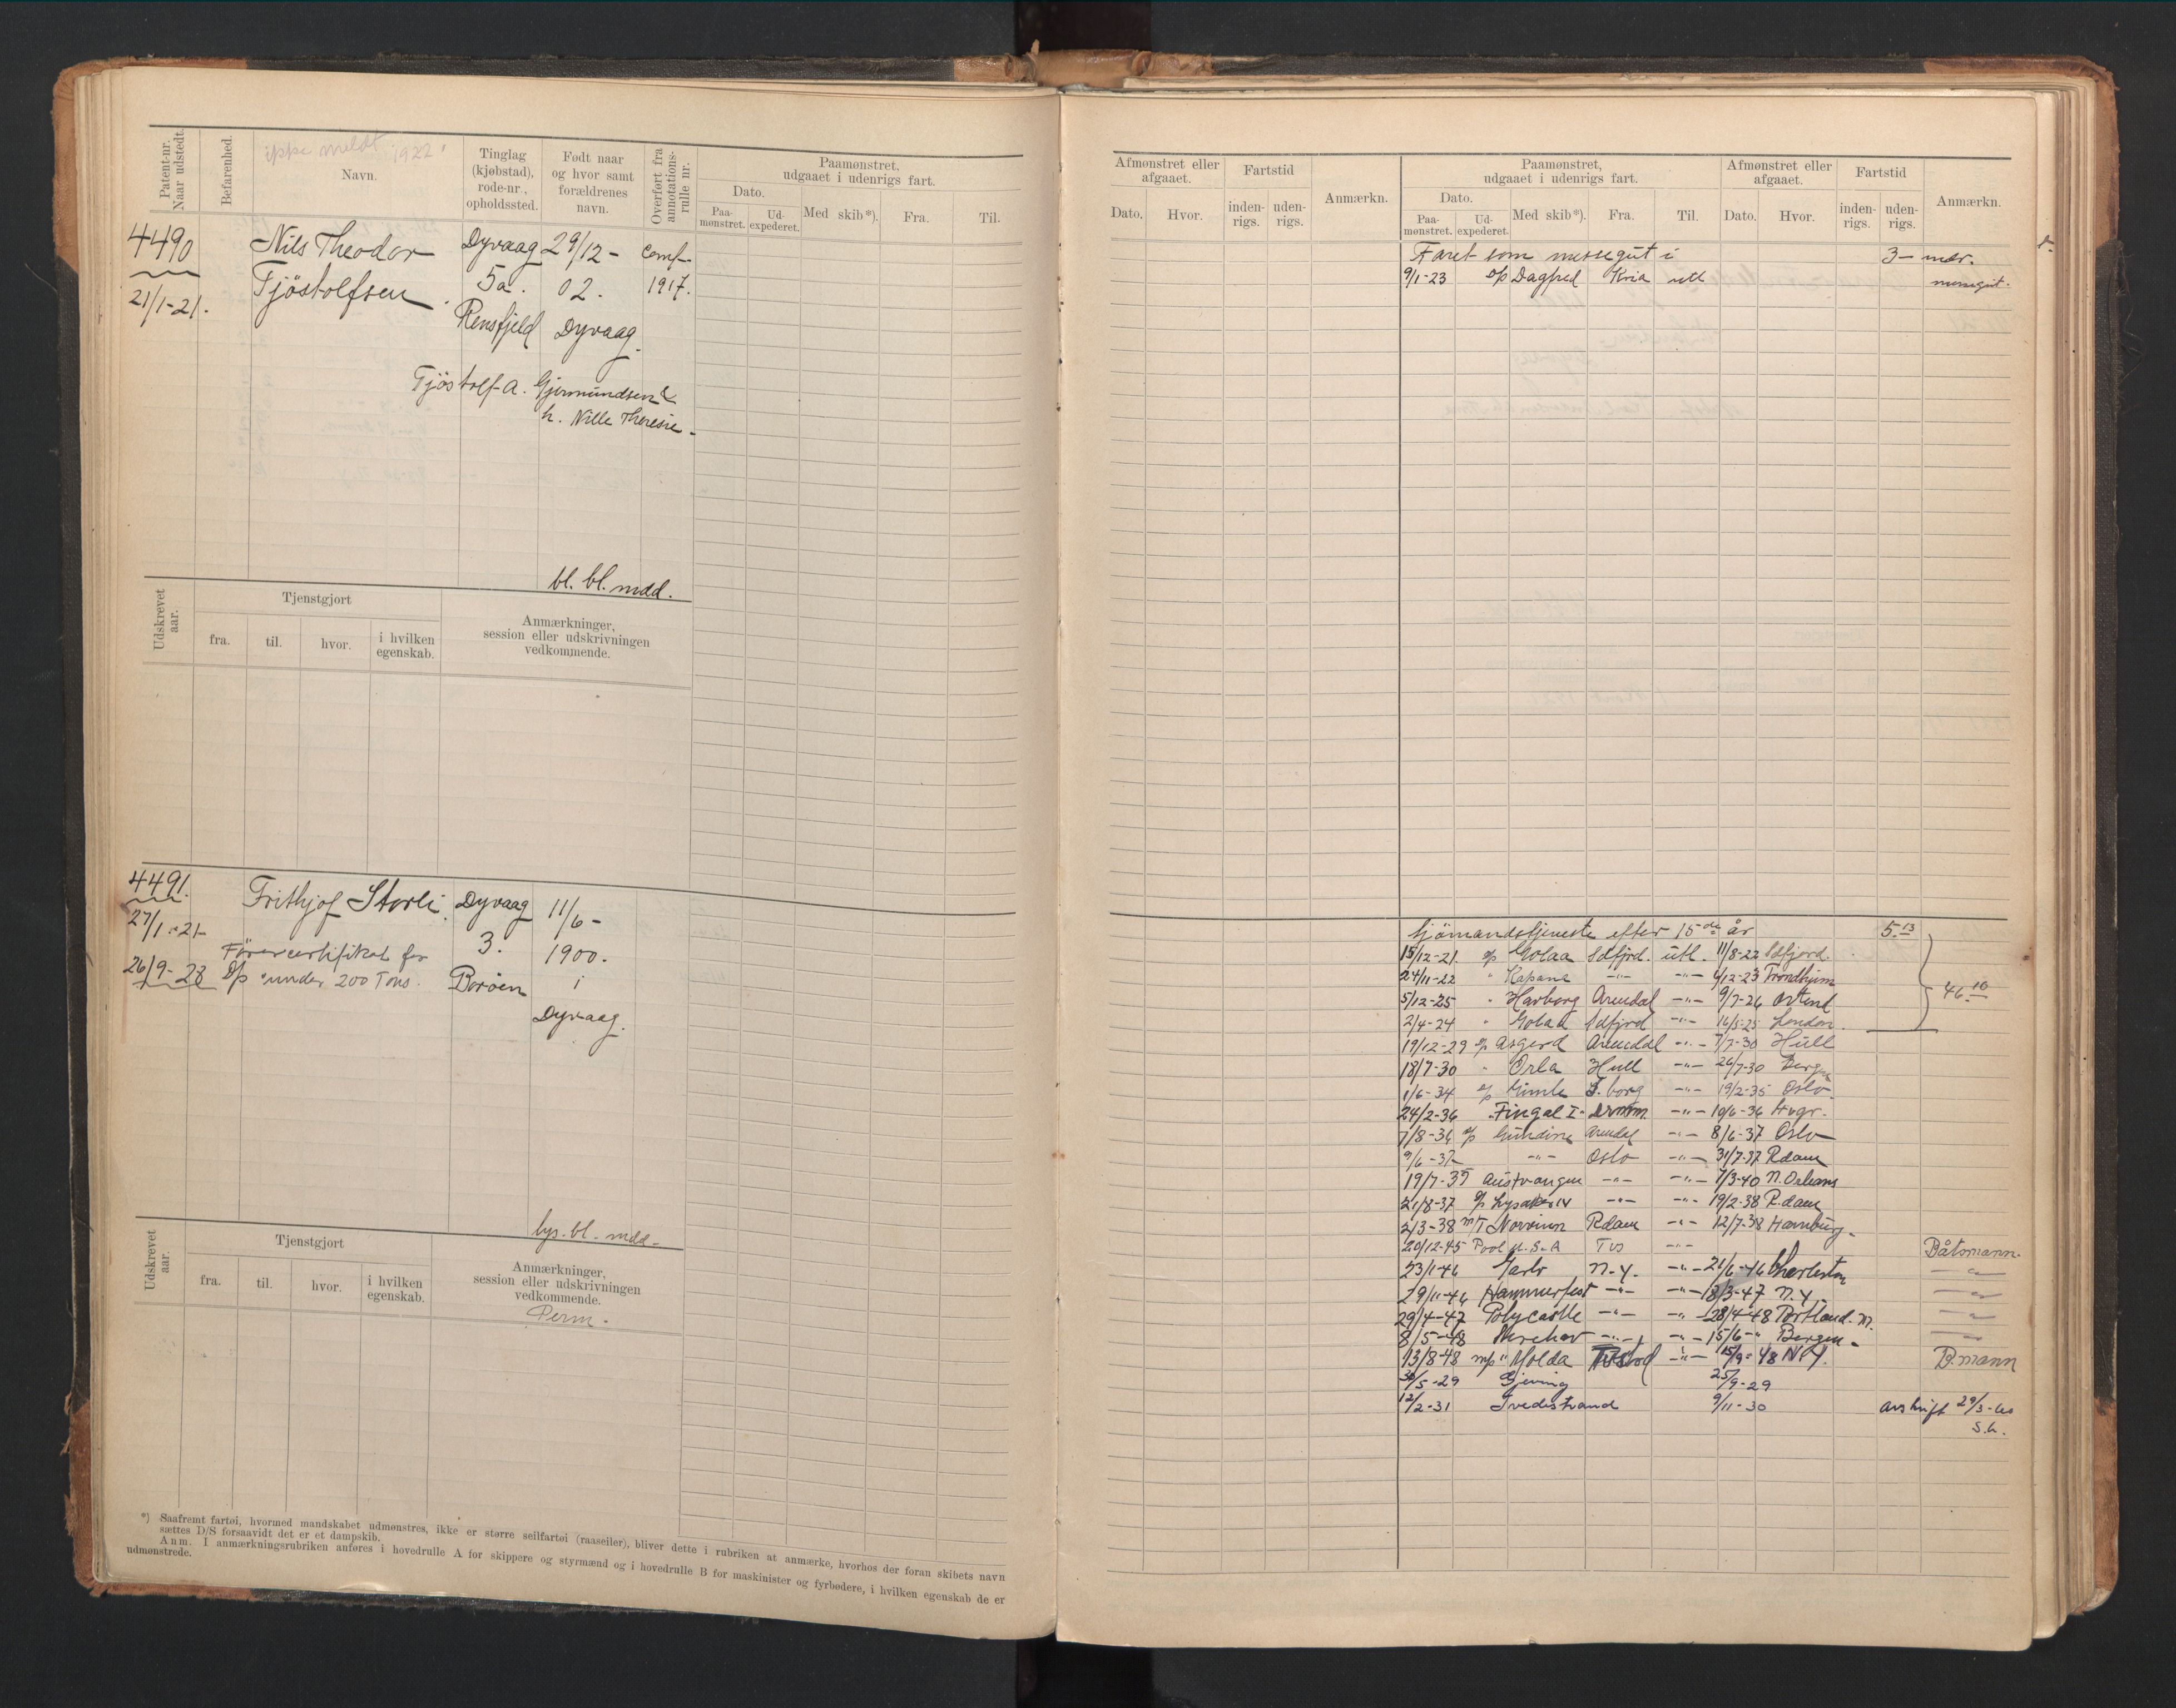 Patent-nr. Naar udstedt.
Befarenhed.
1922.
Navn.
Tinglag (kjøbstad), rode-nr., opholdssted.
Født naar og hvor samt forældrenes navn.
Overført fra annotations-rulle nr.
Paamønstret, udgaaet i udenrigs fart.
Dato.
Paa-mønstret.
Ud-expederet.
Med skib*).
Fra.
Til.
4490
21/1-21.
Nils Theodor
Tjöstolfsen
Dyvaag
5a.
Rensfjeld
29/12-
02.
Dyvaag.
conf-
1917.
Tjöstolf A. Gjermundsen &
h. Nille Theresie.
bl. bl. mdd.
Udskrevet aar.
Tjenstgjort
fra.
til.
hvor.
i hvilken egenskab.
Anmærkninger, session eller udskrivningen vedkommende.
4491.
27/1-21-
Frithjof Storli.
Dyvaag
3.
Boröen
11/6-
1900.
i
Dyvaag.
Förercertifikat for
26/9-28 D/p "under 200 Tons.
lys. bl. mdd-
Udskrevet aar.
Tjenstgjort
fra.
til.
hvor.
i hvilken egenskab.
Anmærkninger, session eller udskrivningen vedkommende.
Perm.
*) Saafremt fartøi, hvormed mandskabet udmønstres, ikke er større seilfartøi (raaseiler), bliver dette i rubriken at anmærke, hvorhos der foran skibets navn
sættes D/S forsaavidt det er et dampskib.
Anm. I anmærkningsrubriken anføres i hovedrulle A for skippere og styrmænd og i hovedrulle B for maskinister og fyrbødere, i hvilken egenskab de er
udmønstrede.
Afmønstret eller afgaaet.
Dato.
Hvor.
Fartstid
inden-rigs.
uden-rigs.
Anmærkn.
Paamønstret, udgaaet i udenrigs fart.
Dato.
Paa-mønstret.
Ud-expederet.
Med skib*).
Fra.
Til.
Afmønstret eller afgaaet.
Dato.
Hvor.
Fartstid
inden-rigs.
uden-rigs.
Anmærkn.
Faret som messegut i 3- mdr.
9/1-23 D/p Dagfred Kria utl messegut.
Sjömandstjeneste efter 15de år 5.13
15/12-21. D/p Golaa Idfjord. utl. 11/8-22 Idfjord.
24/11-22 " Kapana -"- -"- 4/12-23 Trondhjem
46.10
5/12-25 " Havborg Arendal -"- 9/7-26 Ostend
2/4-24 " Golaa Idfjord -"- 16/5-25 London.
19/12-29 D/p Asgerd Arendal -"- 7/7-30 Hull
18/7-30 " Orla Hull -"- 26/7-30 Bergen
1/6-34 D/p Gimle S.borg -"- 19/2-35 Oslo.
24/2-36 " Fingal I- Drmm. -"- 10/6-36 Hvgr.
7/8-36 D/p Gundine Arendal -"- 8/6-37 Oslo
9/6-37 -"- Oslo -"- 31/7-37 Rdam
19/7-39 Austvangen -"- -"- 7/3-40 N.Orleans
21/8-37 D/p Lysaker IV -"- -"- 19/2-38 R.dam
2/3-38 m/T Norvinn Rdam -"- 12/7-38 Hamburg.
20/12-45 Pool U.S.A Tvs -"- Båtsmann.
23/1-46 Jarlo N.Y. -"- 21/6-46 Charleston -"-
29/11-46 Hammerfest -"- -"- 18/3-47 N.Y. -"-
29/4-47 Polycastle -"- -"- 28/4-48 Portland. M. -"-
8/5-48 Nerehav -"- -"- 15/6-" Bergen. -"-
13/8-48 m/p " Molda Tvstrd -"- 15/9-48 N.Y. B.mann
30/5-29 Gjeving 25/9-29
12/2-31 Tvedestrand 9/11-30 avskrift 29/3-60
S.h.